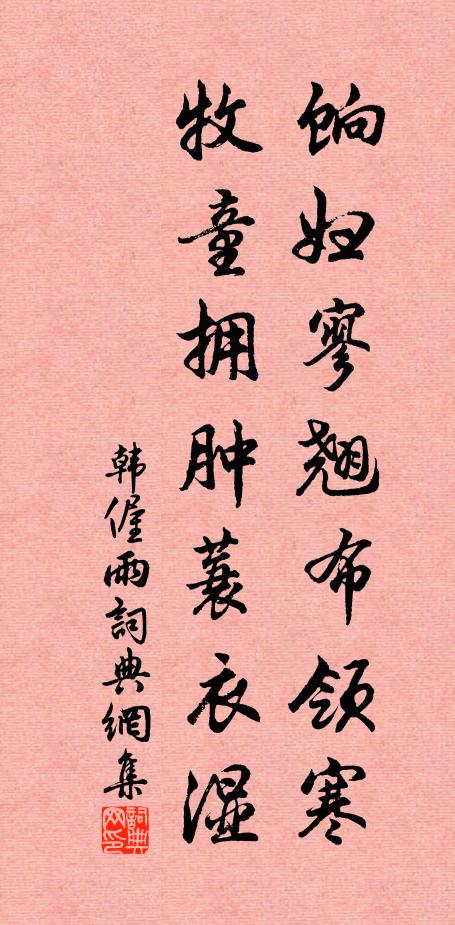 饷妇寥翘布领寒
牧童拥肿蓑衣湿
韩偓雨詞典網集
詞典
网印